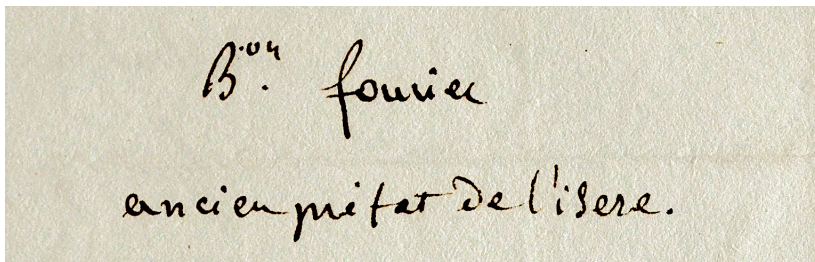 B.on fourier
ancien préfet de l'isere.